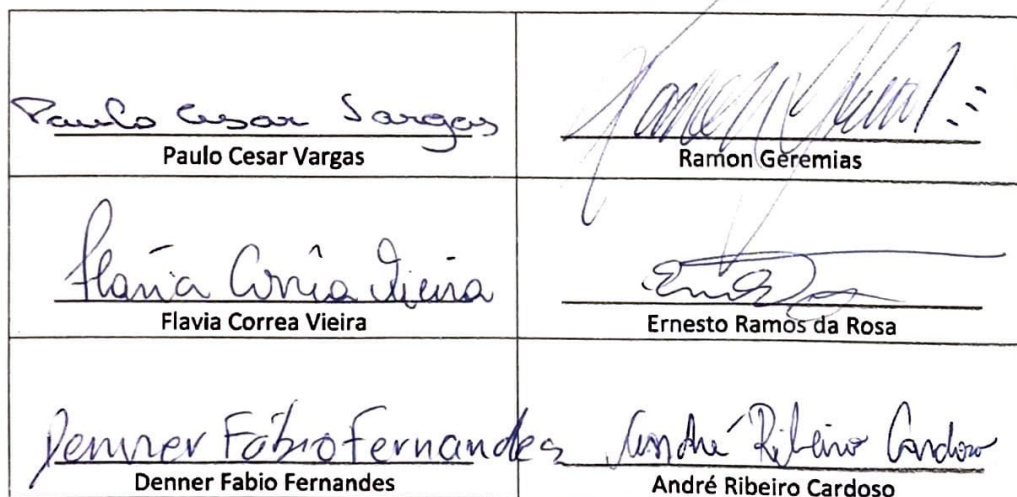 Paulo Cesar Vargas
Paulo Cesar Vargas
Ramon
Ramon Geremias
Flavia Corrêa Vieira
Flavia Correa Vieira
Ernesto Ramos da Rosa
Denner Fábio Fernandes
Denner Fabio Fernandes
André Ribeiro Cardoso
André Ribeiro Cardoso